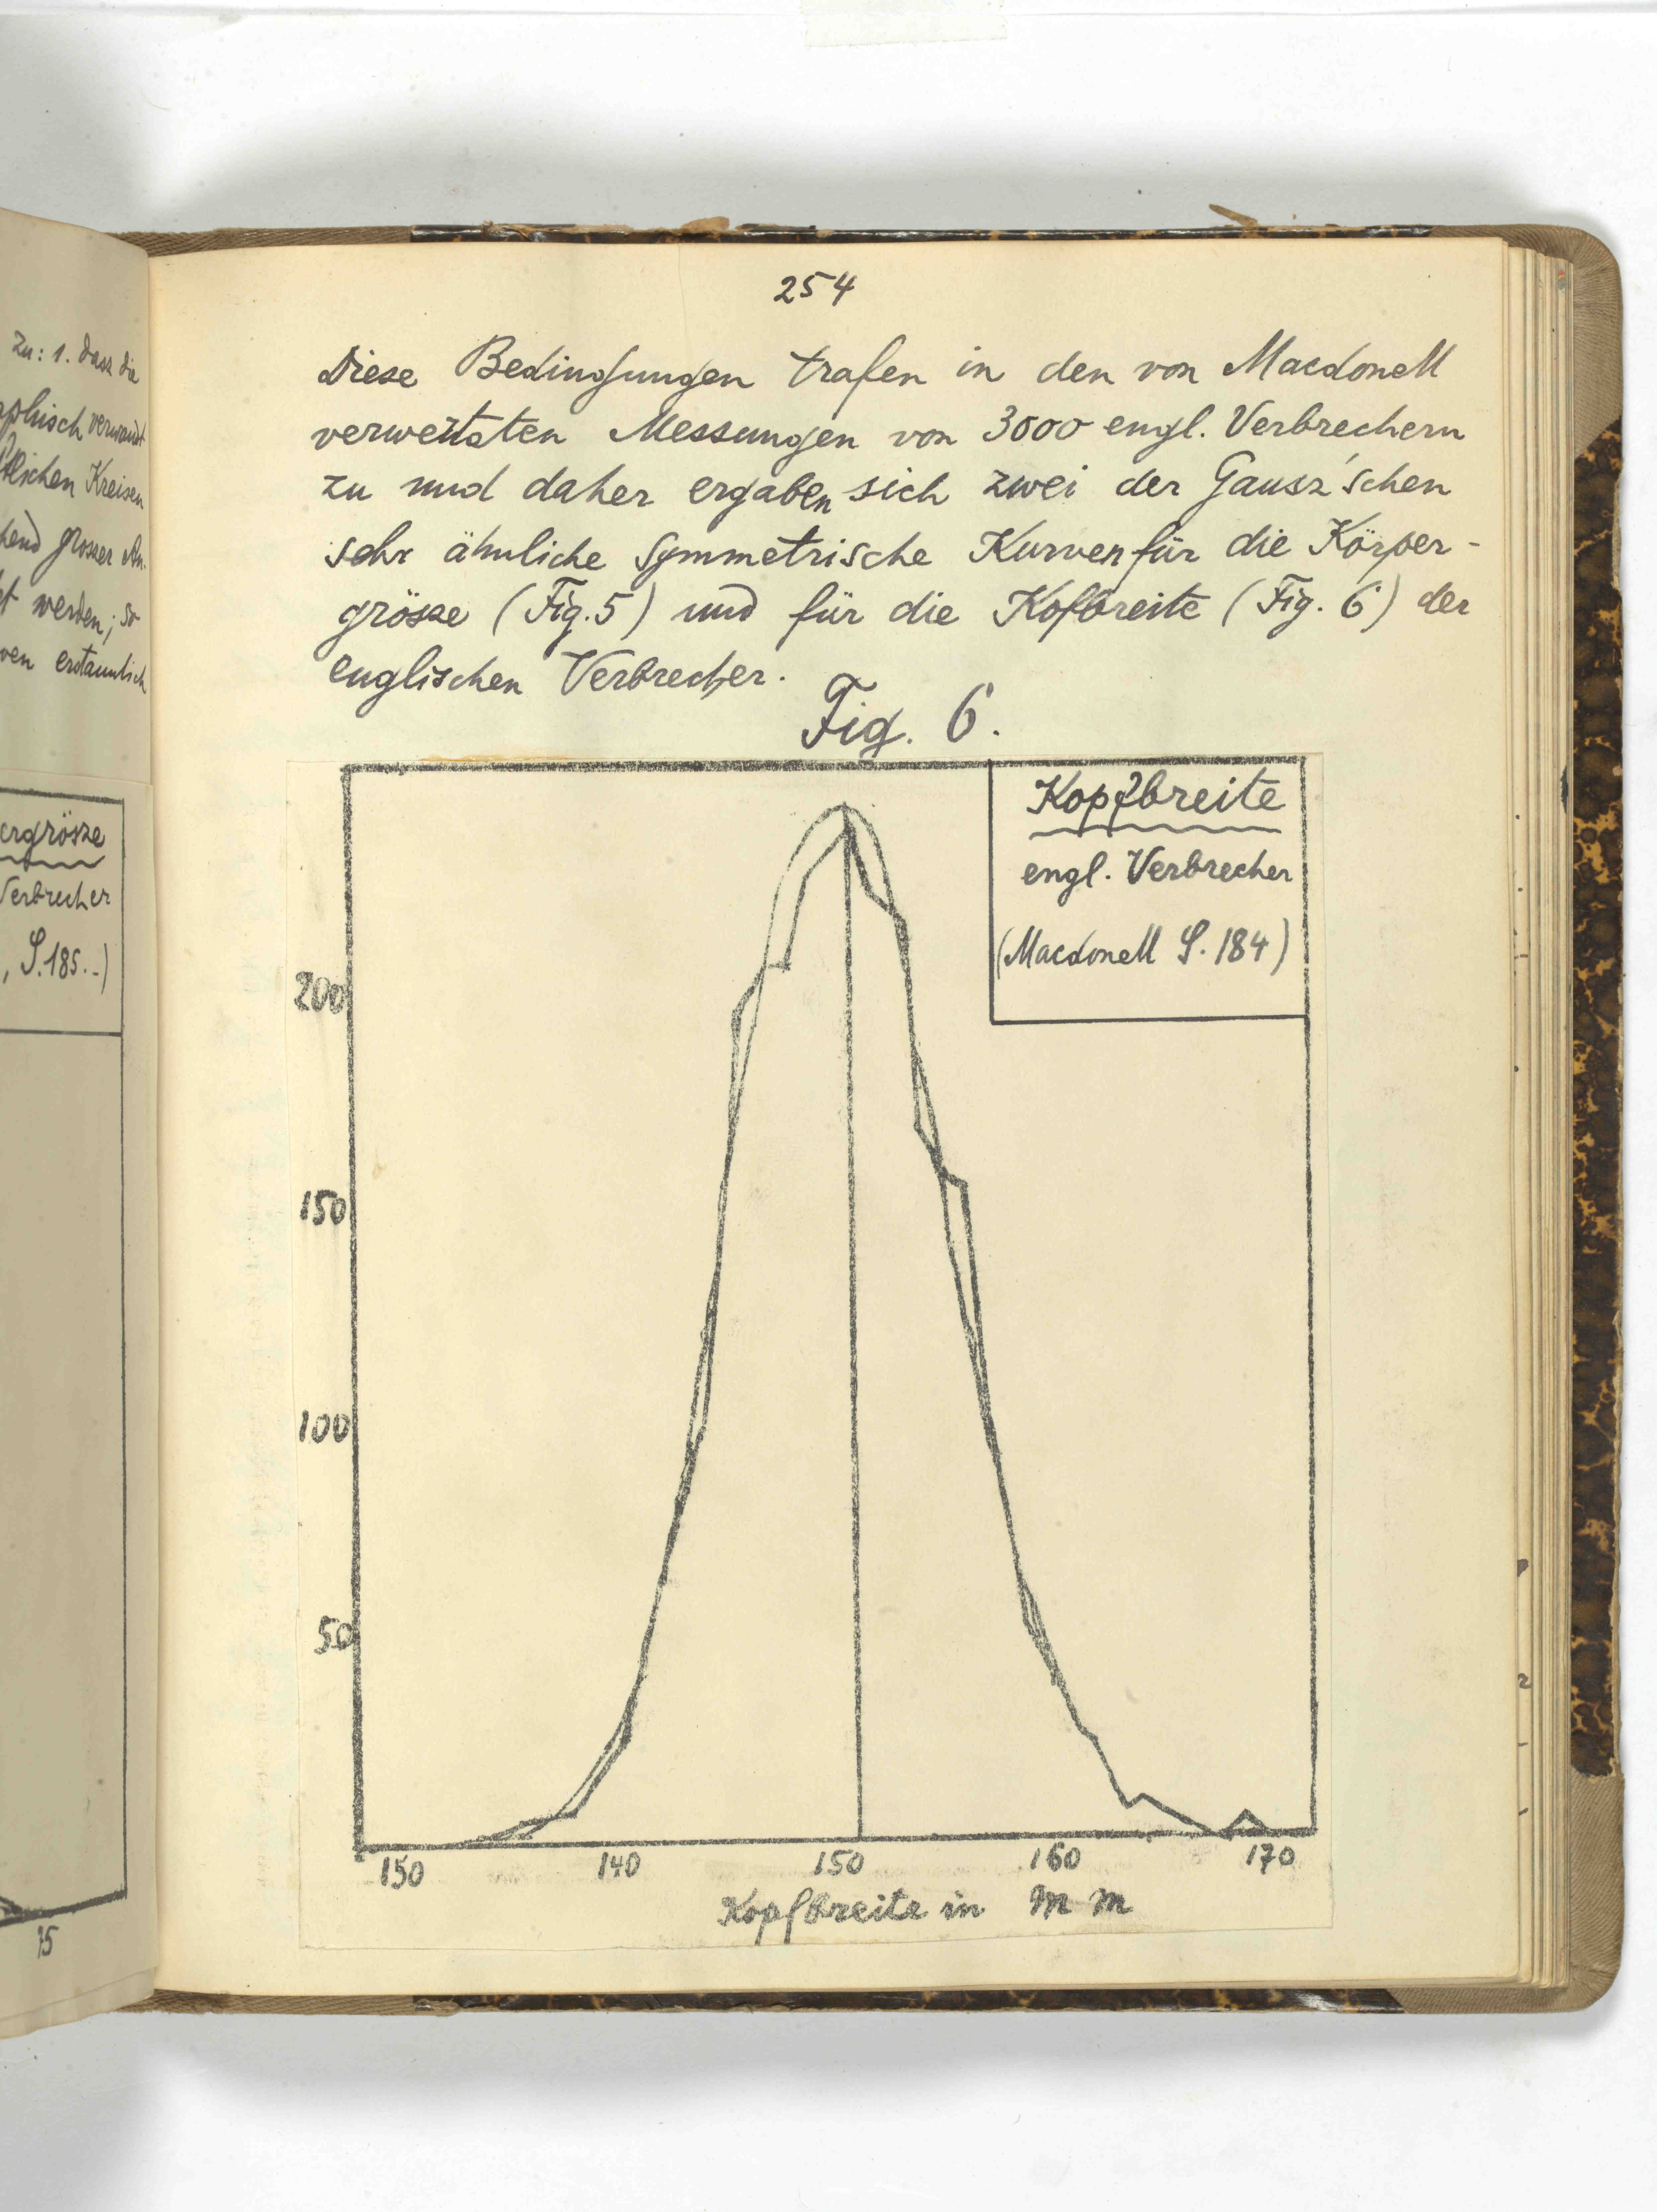 zu: 1. dass die
aphisch verwandt
tlischen Kreisen
hend grosser An-
et werden; so
ven erstaunlich
ergrösze
Verbrecher
, S. 185..)
75
254
Diese Bedingungen trafen in den von Macdonell
verwerteten Messungen von 3000 engl. Verbrechern
zu und daher ergaben sich zwei der Gausz'schen
sehr ähnliche symmetrische Kurven für die Körper-
grösze (Fig. 5) und für die Kopfbreite (Fig. 6) der
englischen Verbrecher.
Fig. 6.
Kopfbreite
engl. Verbrecher
(Macdonell S. 184)
200
150
100
50
150 140 150 160 170
Kopfbreite in mm